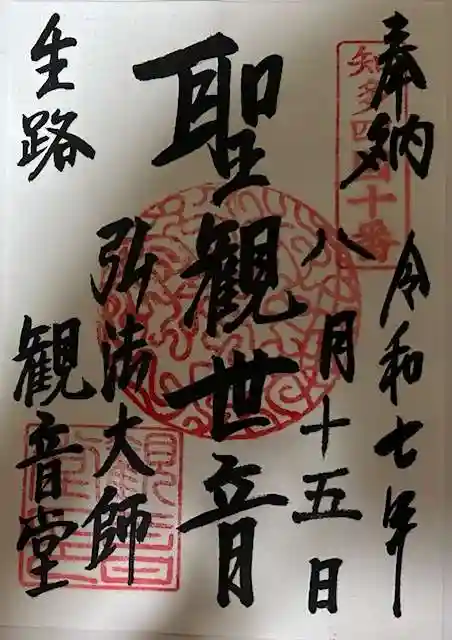 奉納
令和七年
八月十五日
聖観世音
弘法大師
生路
観音堂